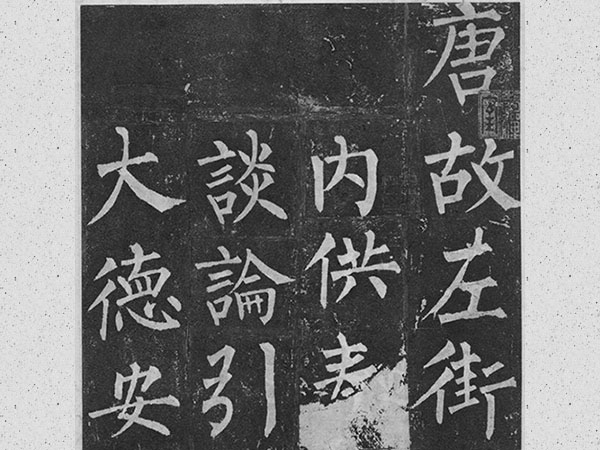 唐故左街
内供
談論引
大徳安